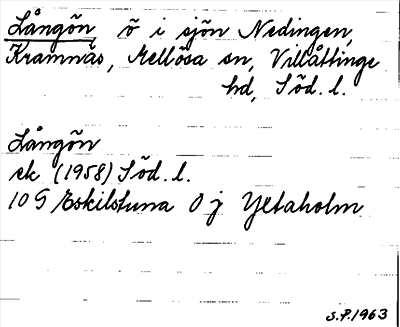 Långön ö i sjön Nedingen,
Kramnäs, Mellösa sn, Villåttinge
hd, Söd. l.
Långön
ek (1958) Söd. l.
10 G Eskilstuna 0 j Yxtaholm
S.P. 1963